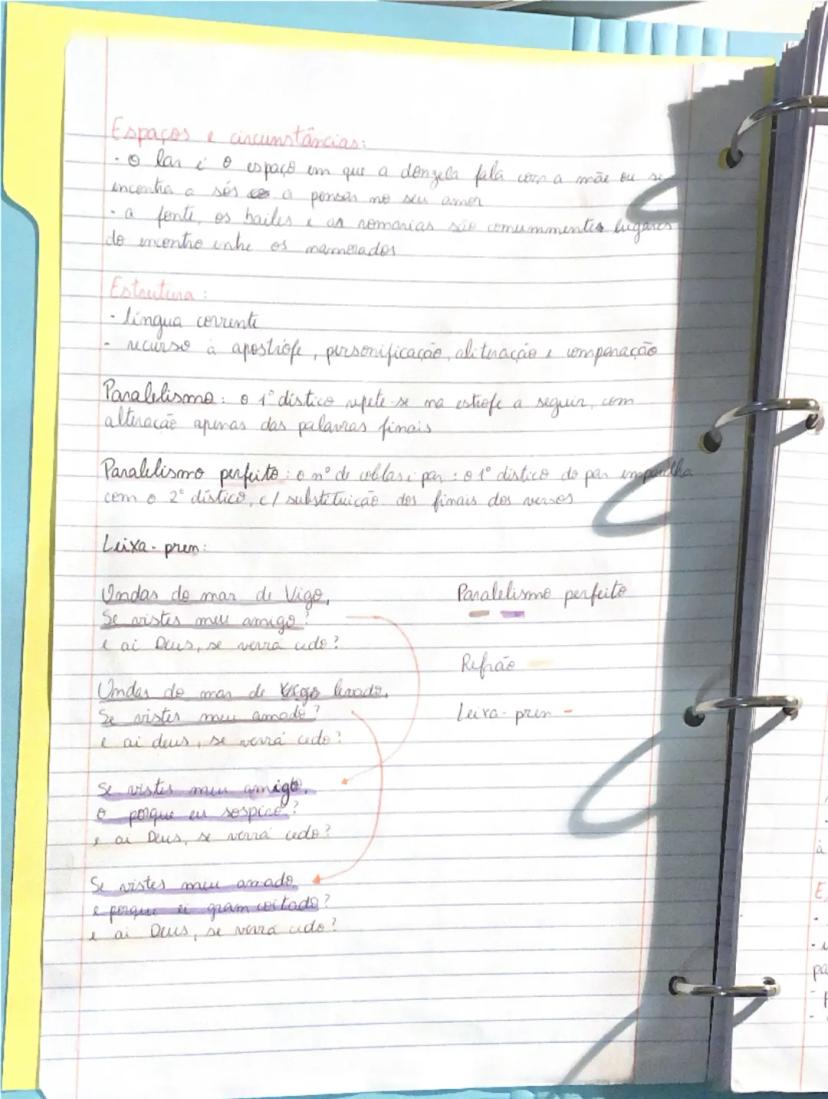 Espaços e circunstâncias:
- O lar é o espaço em que a donzela fala com a mãe ou se
encontra a sós a pensar no seu amor
- a fonte, os bailes e as romarias são comummente lugares
de encontro entre os namorados
Estrutura:
- língua corrente
- recurso à apóstrofe, personificação, aliteração e comparação
Paralelismo: o 1º dístico repete-se na estrofe a seguir, com
alteração apenas das palavras finais
Paralelismo perfeito: o nº de coblas é par: o 1º dístico do par emparelha
com o 2º dístico, c/ substituição dos finais dos versos
Leixa-pren:
Ondas do mar de Vigo,
Se vistes meu amigo?
e ai Deus, se verrá cedo?
Ondas do mar de Vigo levado,
Se vistes meu amado?
e ai deus, se verrá cedo?
Se vistes meu amigo,
o porque eu sospiro?
e ai Deus, se verrá cedo?
Se vistes meu amado,
e porque ei gram coitado?
e ai Deus, se verrá cedo?
Paralelismo perfeito
Refrão
Leixa-pren -